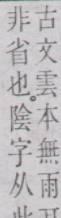 古文雲本無雨
非省也。陰字从